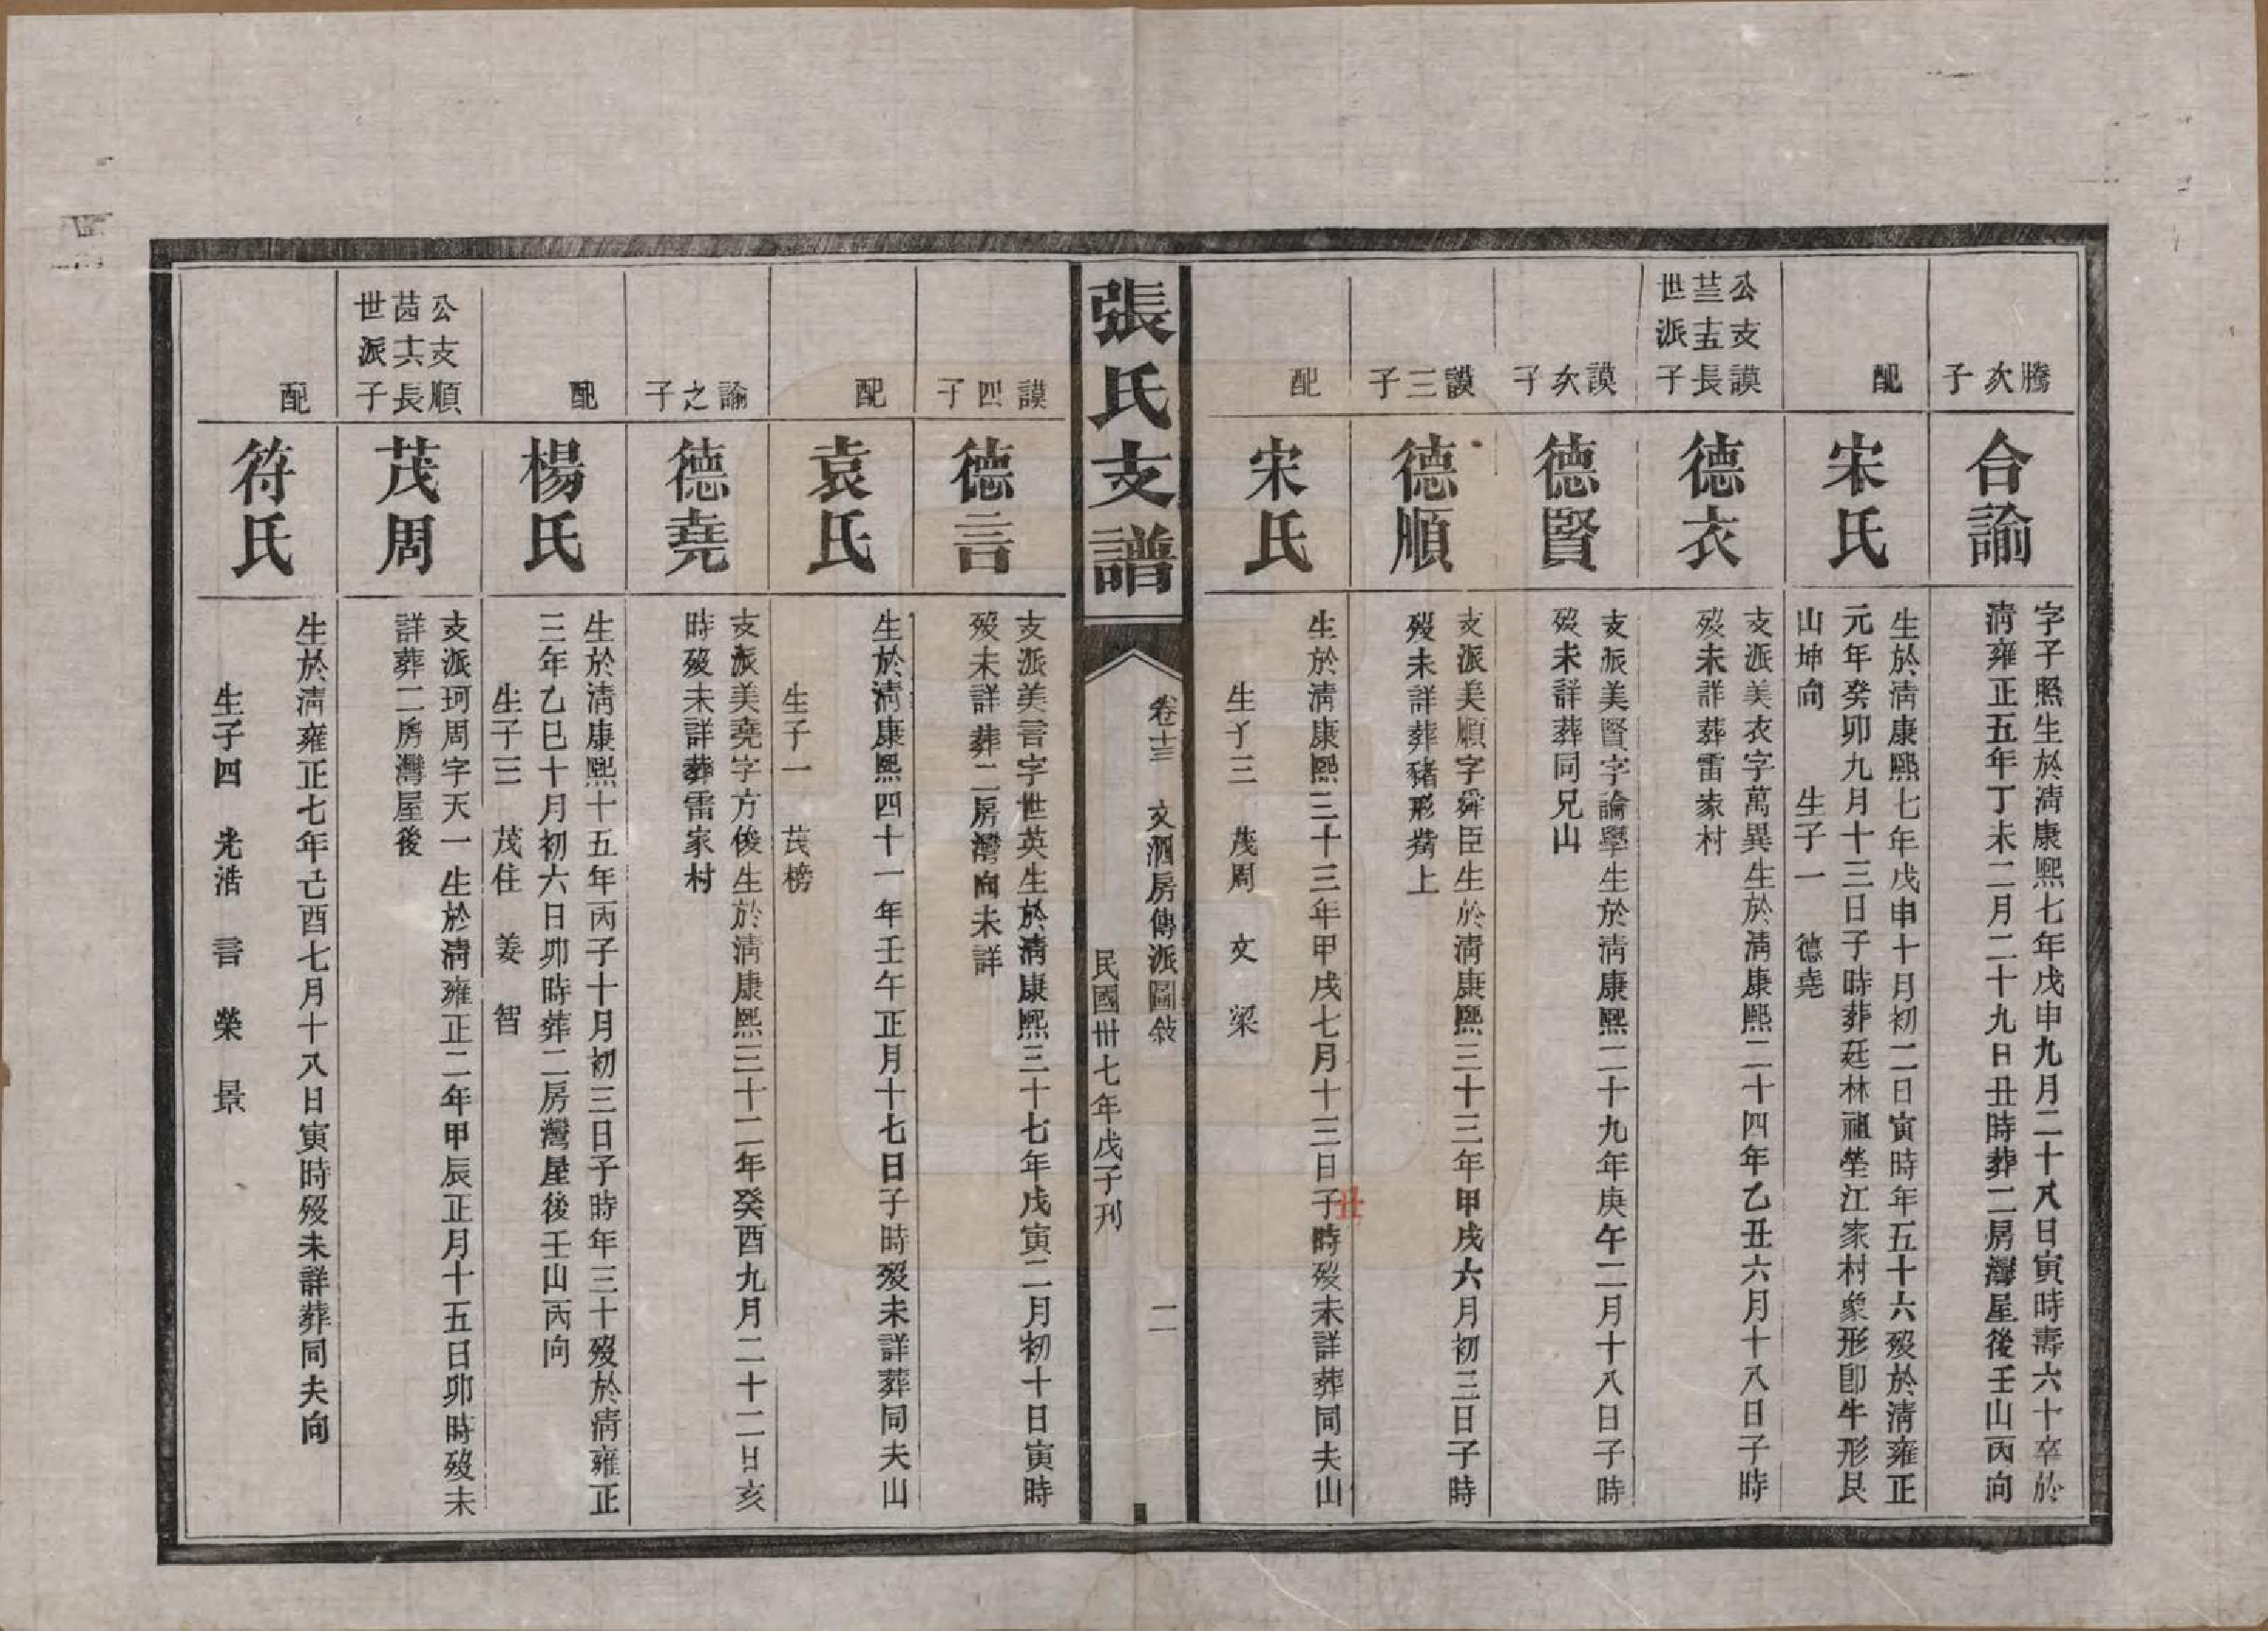 騰次子
合諭
字子照生於清康熙七年戊申九月二十八日寅時壽六十卒於
清雍正五年丁未二月二十九日丑時葬二房灣屋後壬山丙向
配
宋氏
生於清康熙七年戊申十月初二日寅時年五十六歿於清雍正
元年癸卯九月十三日子時葬廷林祖塋江家村象形卽牛形艮
山坤向 生子一 德堯
公支謨
茝十五長
世派子
德衣
支派美衣字萬異生於清康熙二十四年乙丑六月十八日子時
歿未詳葬雷家村
謨次子
德賢
支派美賢字論學生於清康熙二十九年庚午二月十八日子時
歿未詳葬同兄山
謨三子
德順
支派美順字舜臣生於清康熙三十三年甲戌六月初三日子時
歿未詳葬豬形嘴上
配
宋氏
生於清康熙三十三年甲戌七月十三日子時歿未詳葬同夫山
丑
生子三 茂周 文 梁
張氏支譜
卷十三 文泗房傳派圖敍 二
民國卅七年戊子刊
謨四子
德言
支派美言字世英生於清康熙三十七年戊寅二月初十日寅時
歿未詳葬二房灣向未詳
配
袁氏
生於清康熙四十一年壬午正月十七日子時歿未詳葬同夫山
生子一 茂榜
諭之子
德堯
支派美堯字方俊生於清康熙三十二年癸酉九月二十二日亥
時歿未詳葬雷家村
配
楊氏
生於清康熙十五年丙子十月初三日子時年三十歿於清雍正
三年乙巳十月初六日卯時葬二房灣屋後壬山丙向
生子三 茂住 姜 智
公支順
十六長
世派子
茂周
支派珂周字天一生於清雍正二年甲辰正月十五日卯時歿未
詳葬二房灣屋後
配
符氏
生於清雍正七年己酉七月十八日寅時歿未詳葬同夫向
生子四 光浩 言 榮 景